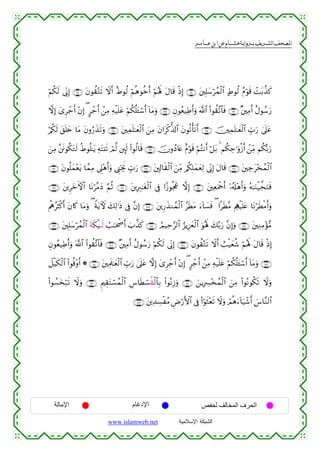 المصحف الشريف برواية هشام عن ابن عامر
كَذَّبَتْ قَوْمُ لُوطٍ الْمُرْسَلِينَ ۝ إِذْ قَالَ لَهُمْ أَخُوهُمْ لُوطٌ أَلَا تَتَّقُونَ ۝ إِنِّي لَكُمْ
رَسُولٌ أَمِينٌ ۝ فَاتَّقُوا اللَّهَ وَأَطِيعُونِ ۝ وَمَا أَسْئَلُكُمْ عَلَيْهِ مِنْ أَجْرٍ إِنْ أَجْرِيَ إِلَّا
عَلَى رَبِّ الْعَالَمِينَ ۝ أَتَأْتُونَ الذُّكْرَانَ مِنَ الْعَالَمِينَ ۝ وَتَذَرُونَ مَا خَلَقَ لَكُمْ
رَبُّكُم مِّنْ أَزْوَاجِكُم بَلْ أَنتُمْ قَوْمٌ عَادُونَ ۝ قَالُوا لَئِن لَّمْ تَنتَهِ يَا لُوطُ لَتَكُونَنَّ مِنَ
الْمُخْرَجِينَ ۝ قَالَ إِنِّي لِعَمَلِكُم مِّنَ الْقَالِينَ ۝ رَبِّ نَجِّنِي وَأَهْلِي مِمَّا يَعْمَلُونَ ۝
فَنَجَّيْنَاهُ وَأَهْلَهُ أَجْمَعِينَ ۝ إِلَّا عَجُوزًا فِي الْغَابِرِينَ ۝ ثُمَّ دَمَّرْنَا الْآخَرِينَ ۝
وَأَمْطَرْنَا عَلَيْهِم مَّطَرًا فَسَاءَ مَطَرُ الْمُنذَرِينَ ۝ إِنَّ فِي ذَٰلِكَ لَآيَةً وَمَا كَانَ أَكْثَرُهُم
مُّؤْمِنِينَ ۝ وَإِنَّ رَبَّكَ لَهُوَ الْعَزِيزُ الرَّحِيمُ ۝ كَذَّبَ أَصْحَابُ لَيْكَةَ الْمُرْسَلِينَ ۝
إِذْ قَالَ لَهُمْ شُعَيْبٌ أَلَا تَتَّقُونَ ۝ إِنِّي لَكُمْ رَسُولٌ أَمِينٌ ۝ فَاتَّقُوا اللَّهَ وَأَطِيعُونِ
۝ وَمَا أَسْئَلُكُمْ عَلَيْهِ مِنْ أَجْرٍ إِنْ أَجْرِيَ إِلَّا عَلَى رَبِّ الْعَالَمِينَ ۝ * أَوْفُوا الْكَيْلَ
وَلَا تَكُونُوا مِنَ الْمُخْسِرِينَ ۝ وَزِنُوا بِالْقُسْطَاسِ الْمُسْتَقِيمِ ۝ وَلَا تَبْخَسُوا
النَّاسَ أَشْيَاءَهُمْ وَلَا تَعْثَوْا فِي الْأَرْضِ مُفْسِدِينَ ۝
الحرف المخالف لحفص الإدغام الإمالة
الشبكة الإسلامية www.islamweb.net